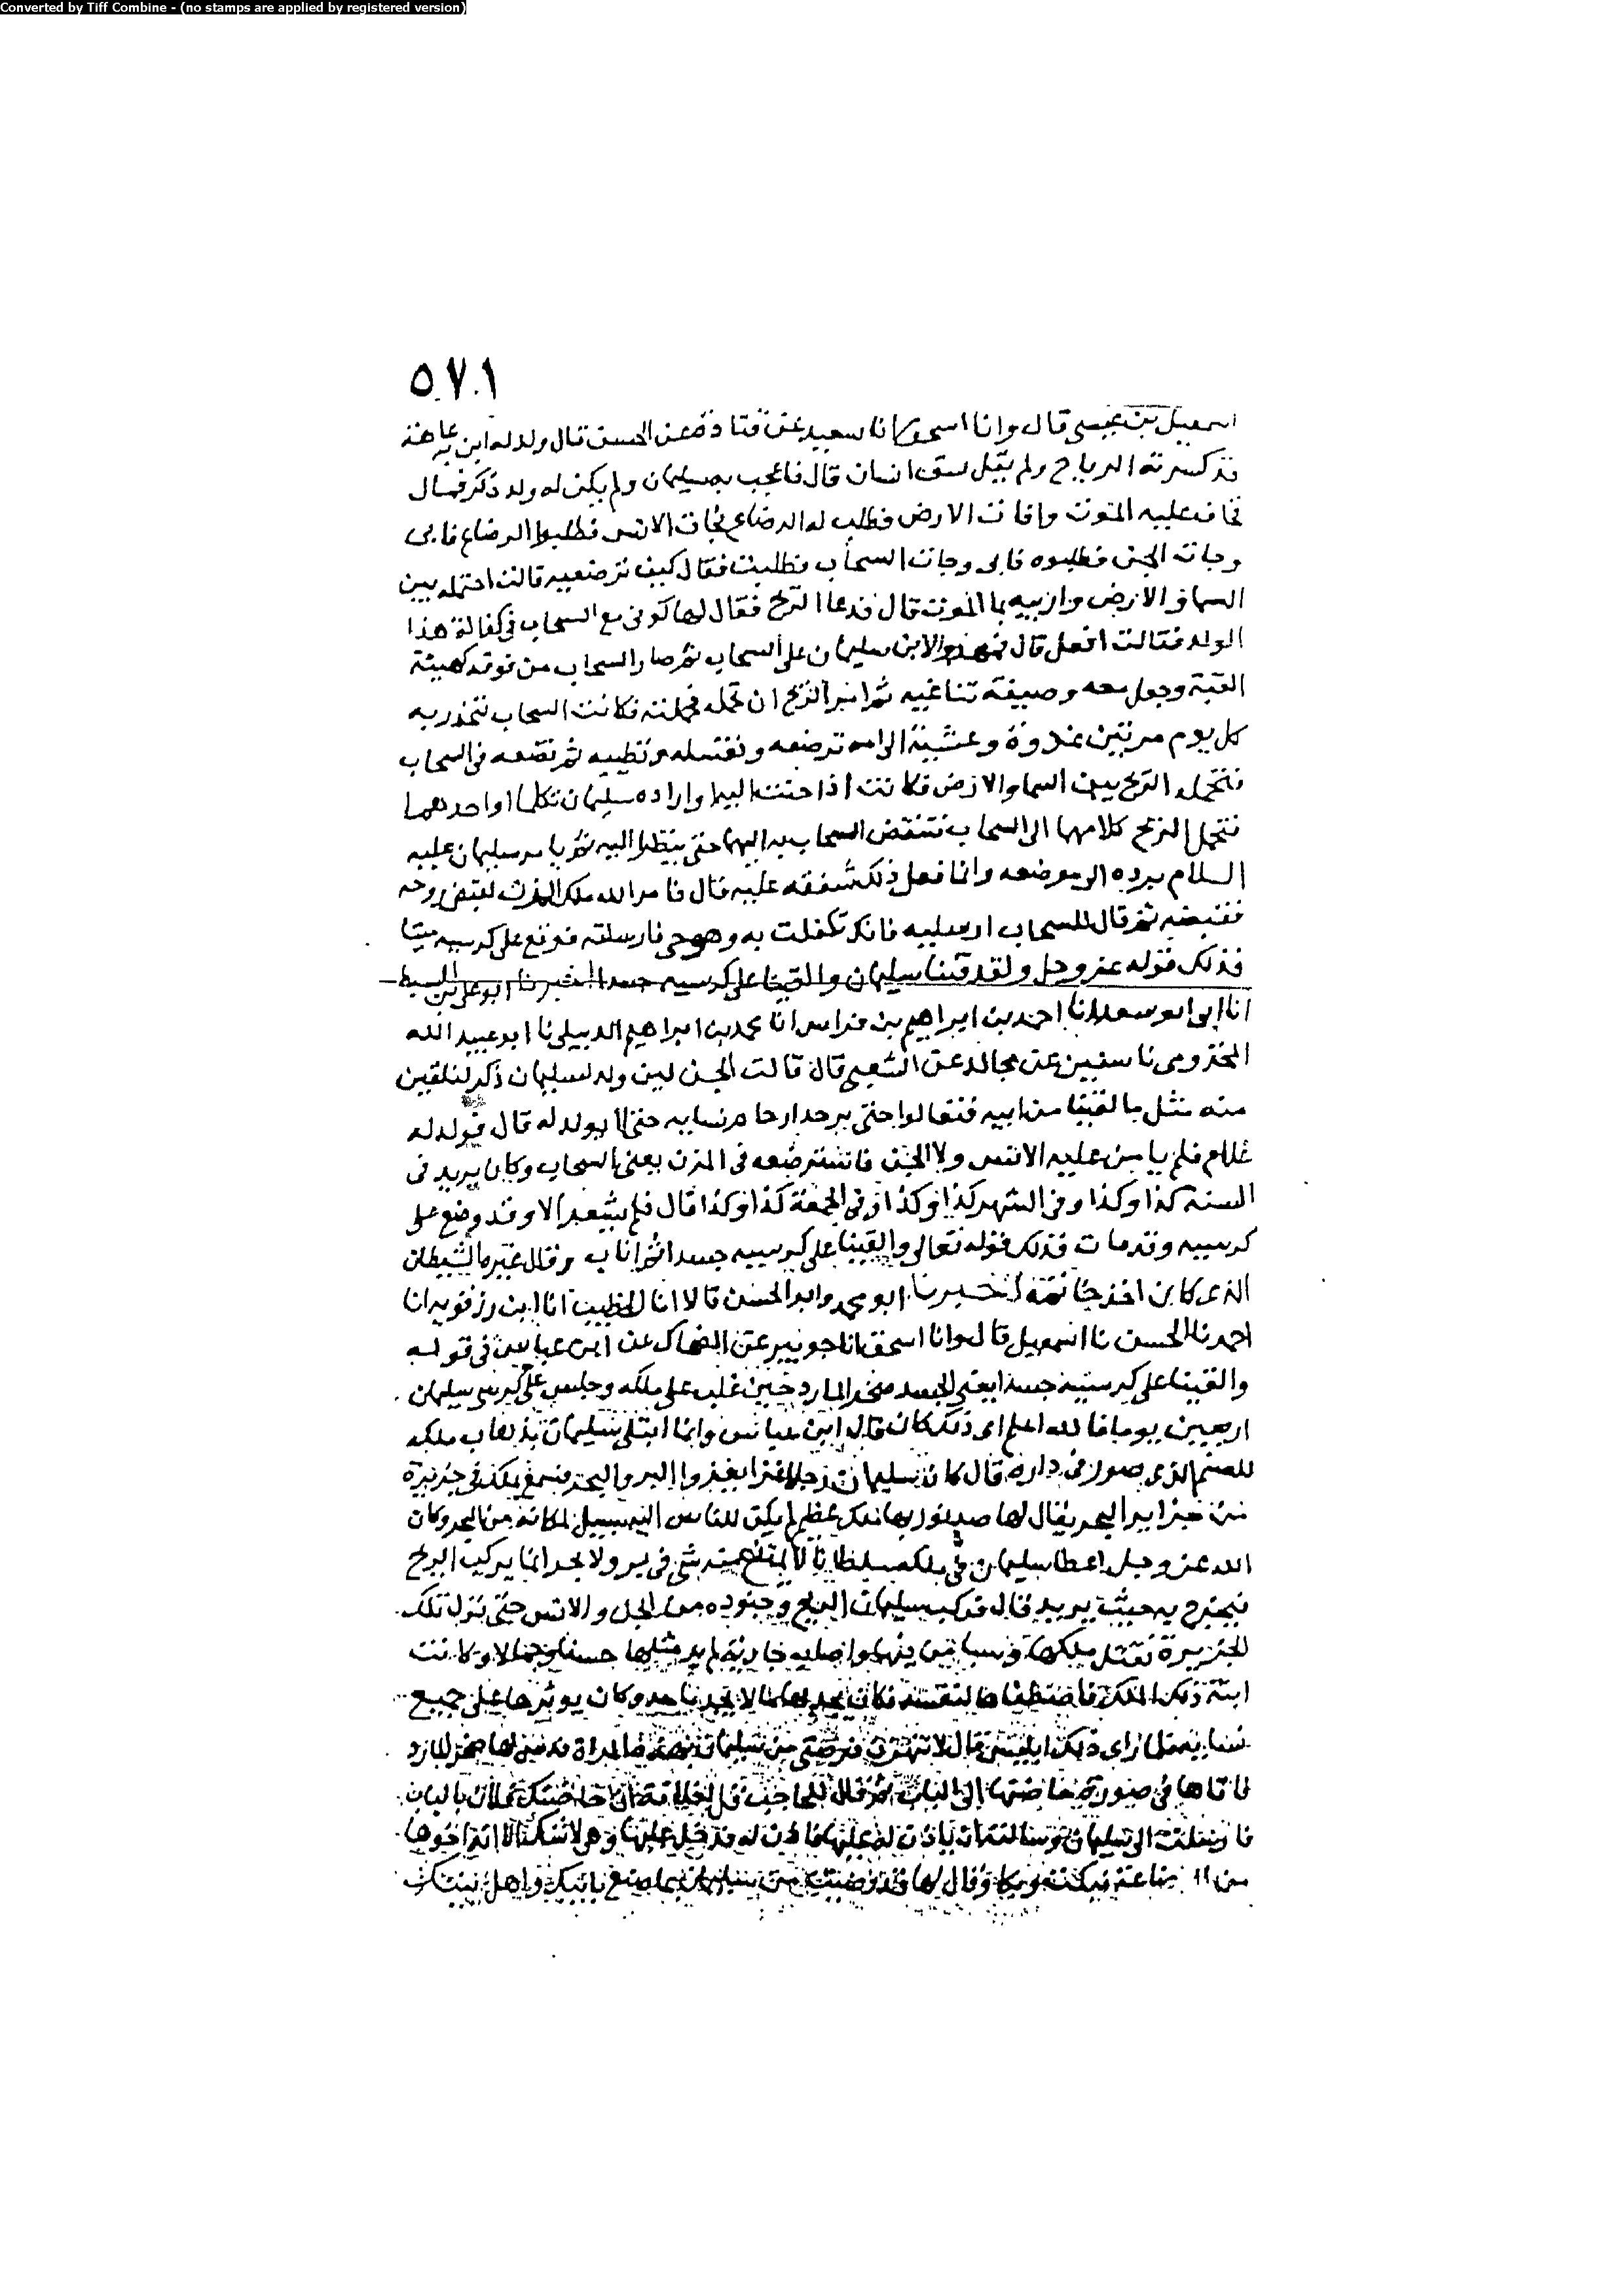 Converted by Tiff Combine - (no stamps are applied by registered version)
٥٧١
اسمعيل بن عيسى قال وانا اسحق انا سعيد عن قتادة عن الحسن قال ولد له ابن به عاهة
قد كسرته الرياح ولم يقبل لسق انسان قال فاعجب به سليمان ولم يكن له ولد ذكر فمال
تخاف عليه الموت وافات الارض فطلب له الرضاع فجات الانس فطلبوا الرضاع فابى
وجات الجن فطلبوه فابى وجات السحاب فطلبت فقال كيف ترضعيه قالت احتمله بين
السما والارض واربيه بما المزن قال فدعا الريح فقال لها كونى مع السحاب فى كفالة هذا
الولد فقالت افعل قال فمهدوا لابن سليمان على السحاب ثم صار السحاب من فوقه كهيئة
القبة وجعل معه وصيفة تناغيه ثم امر الريح ان تحمله فحملته فكانت السحاب تنحدر به
كل يوم مرتين غدوة وعشية الى امه ترضعه وتغسله وتطيبه ثم تضعه فى السحاب
فتحمله الريح بين السما والارض فكانت اذا حنت اليه واراده سليمان تكلما او احدهما
فتحمل الريح كلامهما الى السحاب فتنقض السحاب به اليهما حتى ينظرا اليه ثم يامر سليمان عليه
السلام برده الى موضعه وانما فعل ذلك شفقة عليه قال فامر الله ملك الموت بقبض روحه
فقبضه ثم قال للسحاب ارسليه فانك تكفلت به وهو حى فارسلته فوقع على كرسيه ميتا
فذلك قوله عز وجل ولقد فتنا سليمان والقينا على كرسيه جسدا اخبرنا ابو على بن السبط
انا ابى ابو سعد انا احمد بن ابراهيم بن فراس انا محمد بن ابراهيم الديبلى نا ابو عبيد الله
المخزومى نا سفين عن مجالد عن الشعبى قال قالت الجن لين ولد لسليمان ذكر لنلقين
منه مثل ما لقينا من ابيه فتعالوا حتى نرصد ارحام نسايه حتى لا يولد له قال فولد له
غلام فلم يامن عليه الانس ولا الجن فاسترضعه فى المزن يعنى السحاب وكان يزيد فى
السنة كذا وكذا وفى الشهر كذا وكذا وفى الجمعة كذا وكذا قال فلم يشعر الا وقد وضع على
كرسيه وقد مات فذلك قوله تعالى والقينا على كرسيه جسدا ثم اناب وقال غيره الشيطان
الذى كان اخذ خاتمه اخبرنا ابو محمد وابو الحسن قالا انا الخطيب انا ابن رزقويه انا
احمد نا الحسن نا اسمعيل قال وانا اسحق انا جويبر عن الضحاك عن ابن عباس فى قوله
والقينا على كرسيه جسدا يعنى الجسد صخر المارد حين غلب على ملكه وجلس على كرسى سليمان
اربعين يوما فالله اعلم اى ذلك كان قال ابن عباس وانما ابتلى سليمان بذهاب ملكه
للصنم الذى صور فى داره قال كان سليمان رجلا غزا يغزوا البر والبحر فسمع بملك فى جزيرة
من جزاير البحر يقال لها صيدون بها ملك عظيم لم يكن للناس اليه سبيل لمكانه من البحر وكان
الله عز وجل اعطا سليمان فى ملكه سلطانا لا يمتنع منه شى فى بر ولا بحر انما يركب الريح
فيخرج به حيث يريد قال فركب سليمان الريح وجنوده من الجن والانس حتى نزل تلك
الجزيرة فقتل ملكها وسبا من فيها واصاب جارية لم ير مثلها حسنا وجمالا وكانت
ابنة ذلك الملك فاصطفاها لنفسه فكان يجد بها ما لا يجد باحد وكان يوثرها على جميع
نسايه فلما راى ذلك ابليس قال لا تنتهز فرصتى من سليمان المراة فدس لها صخر المارد
فاتاها فى صورة حاضنتها الى الباب ثم قال للحاجب قل لفلانة ان حاضنتك فلان بالباب
فارسلت الى سليمان وسالته ان ياذن له عليها فاذن له فدخل عليها وهى لا تشك الا انه اخوها
من الرضاعة فبكت وبكا وقال لها قد رضيت من سليمان بما صنع بابيك واهل بيتك